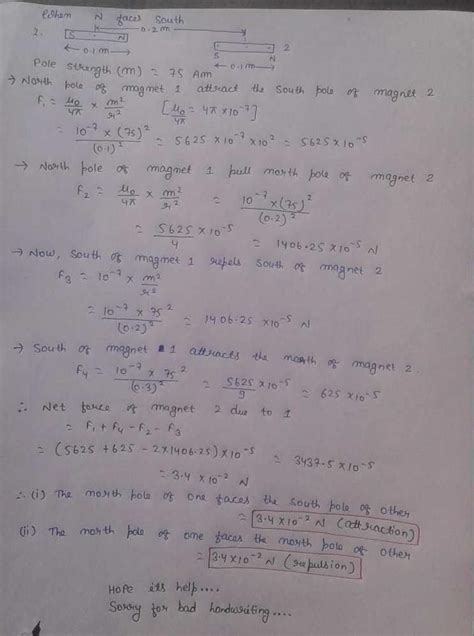 When N faces South
2. S N 0.2 m S N 2
0.1 m 0.1 m
Pole strength (m) = 75 Am
→ North pole of magnet 1 attract the South pole of magnet 2
F₁ = μ₀/4π × m²/r² [μ₀/4π = 4π × 10⁻⁷]
= 10⁻⁷ × (75)²/(0.1)² = 5625 × 10⁻⁷ × 10² = 5625 × 10⁻⁵
→ North pole of magnet 1 pull north pole of magnet 2
F₂ = μ₀/4π × m²/r² = 10⁻⁷ × (75)²/(0.2)²
= 5625 × 10⁻⁵/4 = 1406.25 × 10⁻⁵ N
→ Now, South of magnet 1 repels South of magnet 2
F₃ = 10⁻⁷ × m²/r²
= 10⁻⁷ × 75²/(0.2)² = 1406.25 × 10⁻⁵ N
→ South of magnet 1 attracts the north of magnet 2.
F₄ = 10⁻⁷ × 75²/(0.3)² = 5625/9 × 10⁻⁵ = 625 × 10⁻⁵
∴ Net force of magnet 2 due to 1
= F₁ + F₄ - F₂ - F₃
= (5625 + 625 - 2×1406.25) × 10⁻⁵ = 3437.5 × 10⁻⁵
= 3.4 × 10⁻² N
∴ (i) The north pole of one faces the south pole of other
= 3.4 × 10⁻² N (attraction)
(ii) The north pole of one faces the north pole of other
= 3.4 × 10⁻² N (repulsion)
Hope its help....
Sorry for bad handwriting....